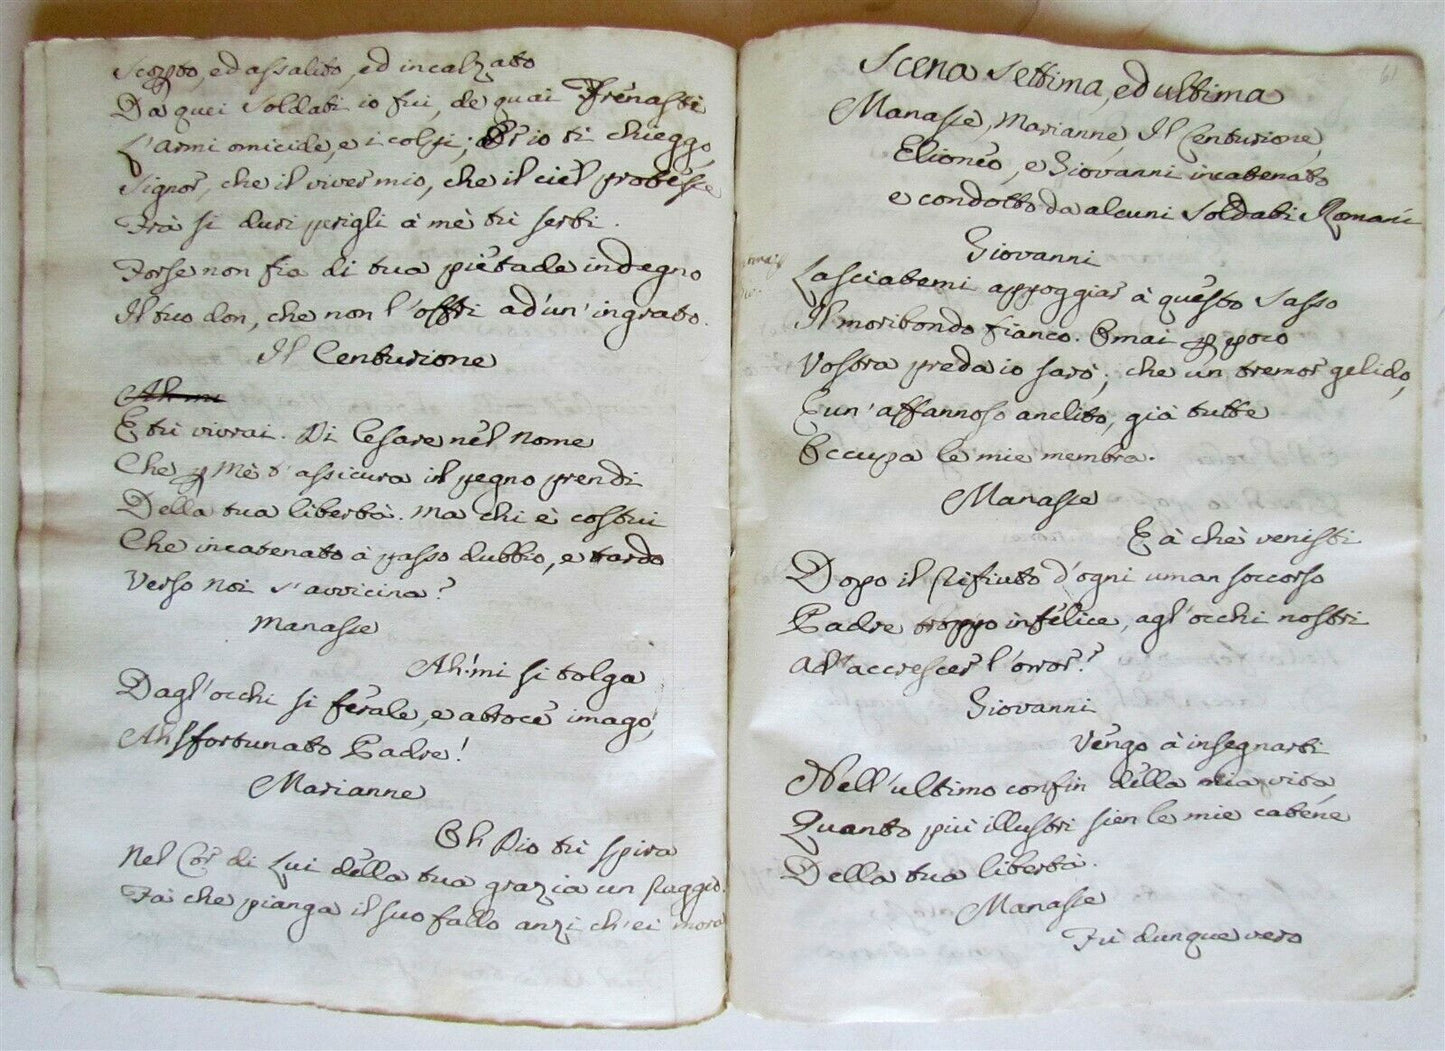 Scorto, ed assalito, ed incalzato
Da quei Soldati io fui, de quai Frenasti
L'armi omicide, e i colpi; Or io ti chieggo
Signor, che il viver mio, che il ciel protesse
Frà si duri perigli à mè tù serbi.
Forse non fia di tua pietade indegno
Il tuo don, che non l'offri ad'un'ingrato.
Il Centurione
Ah mi
E tù vivrai. Di Cesare nel nome
Che p mè t'assicura il pegno prendi
Della tua libertà. Ma chi è costui
Che incatenato à passo dubbio, e tardo
Verso noi s'avvicina?
Manasse
Ah! mi si tolga
Dagl'occhi si ferale, e atroce imago,
Ah sfortunato Padre!
Marianne
Oh Dio tù spira
Nel Cor di Lui della tua grazia un Raggio.
Fà che pianga il suo fallo anzi ch'ei mora
61
Scena Settima, ed ultima
Manasse, Marianne, Il Centurione,
Elioneo, e Giovanni incatenato
e condotto da alcuni Soldati Romani
Giovanni
Lasciatemi appoggiar à questo Sasso
Il moribondo fianco. Omai p poco
Vostra preda io sarò; che un tremor gelido,
E un'affannoso anelito, già tutte
Occupa le mie membra.
Manasse
E à chè venisti
Dopo il Rifiuto d'ogni uman soccorso
Padre troppo infelice, agl'occhi nostri
Ad'accrescer l'orror?
Giovanni
Vengo à insegnarti
Nell'ultimo confin della mia vita
Quanto più illustri sien le mie catene
Della tua libertà.
Manasse
Fù dunque vero